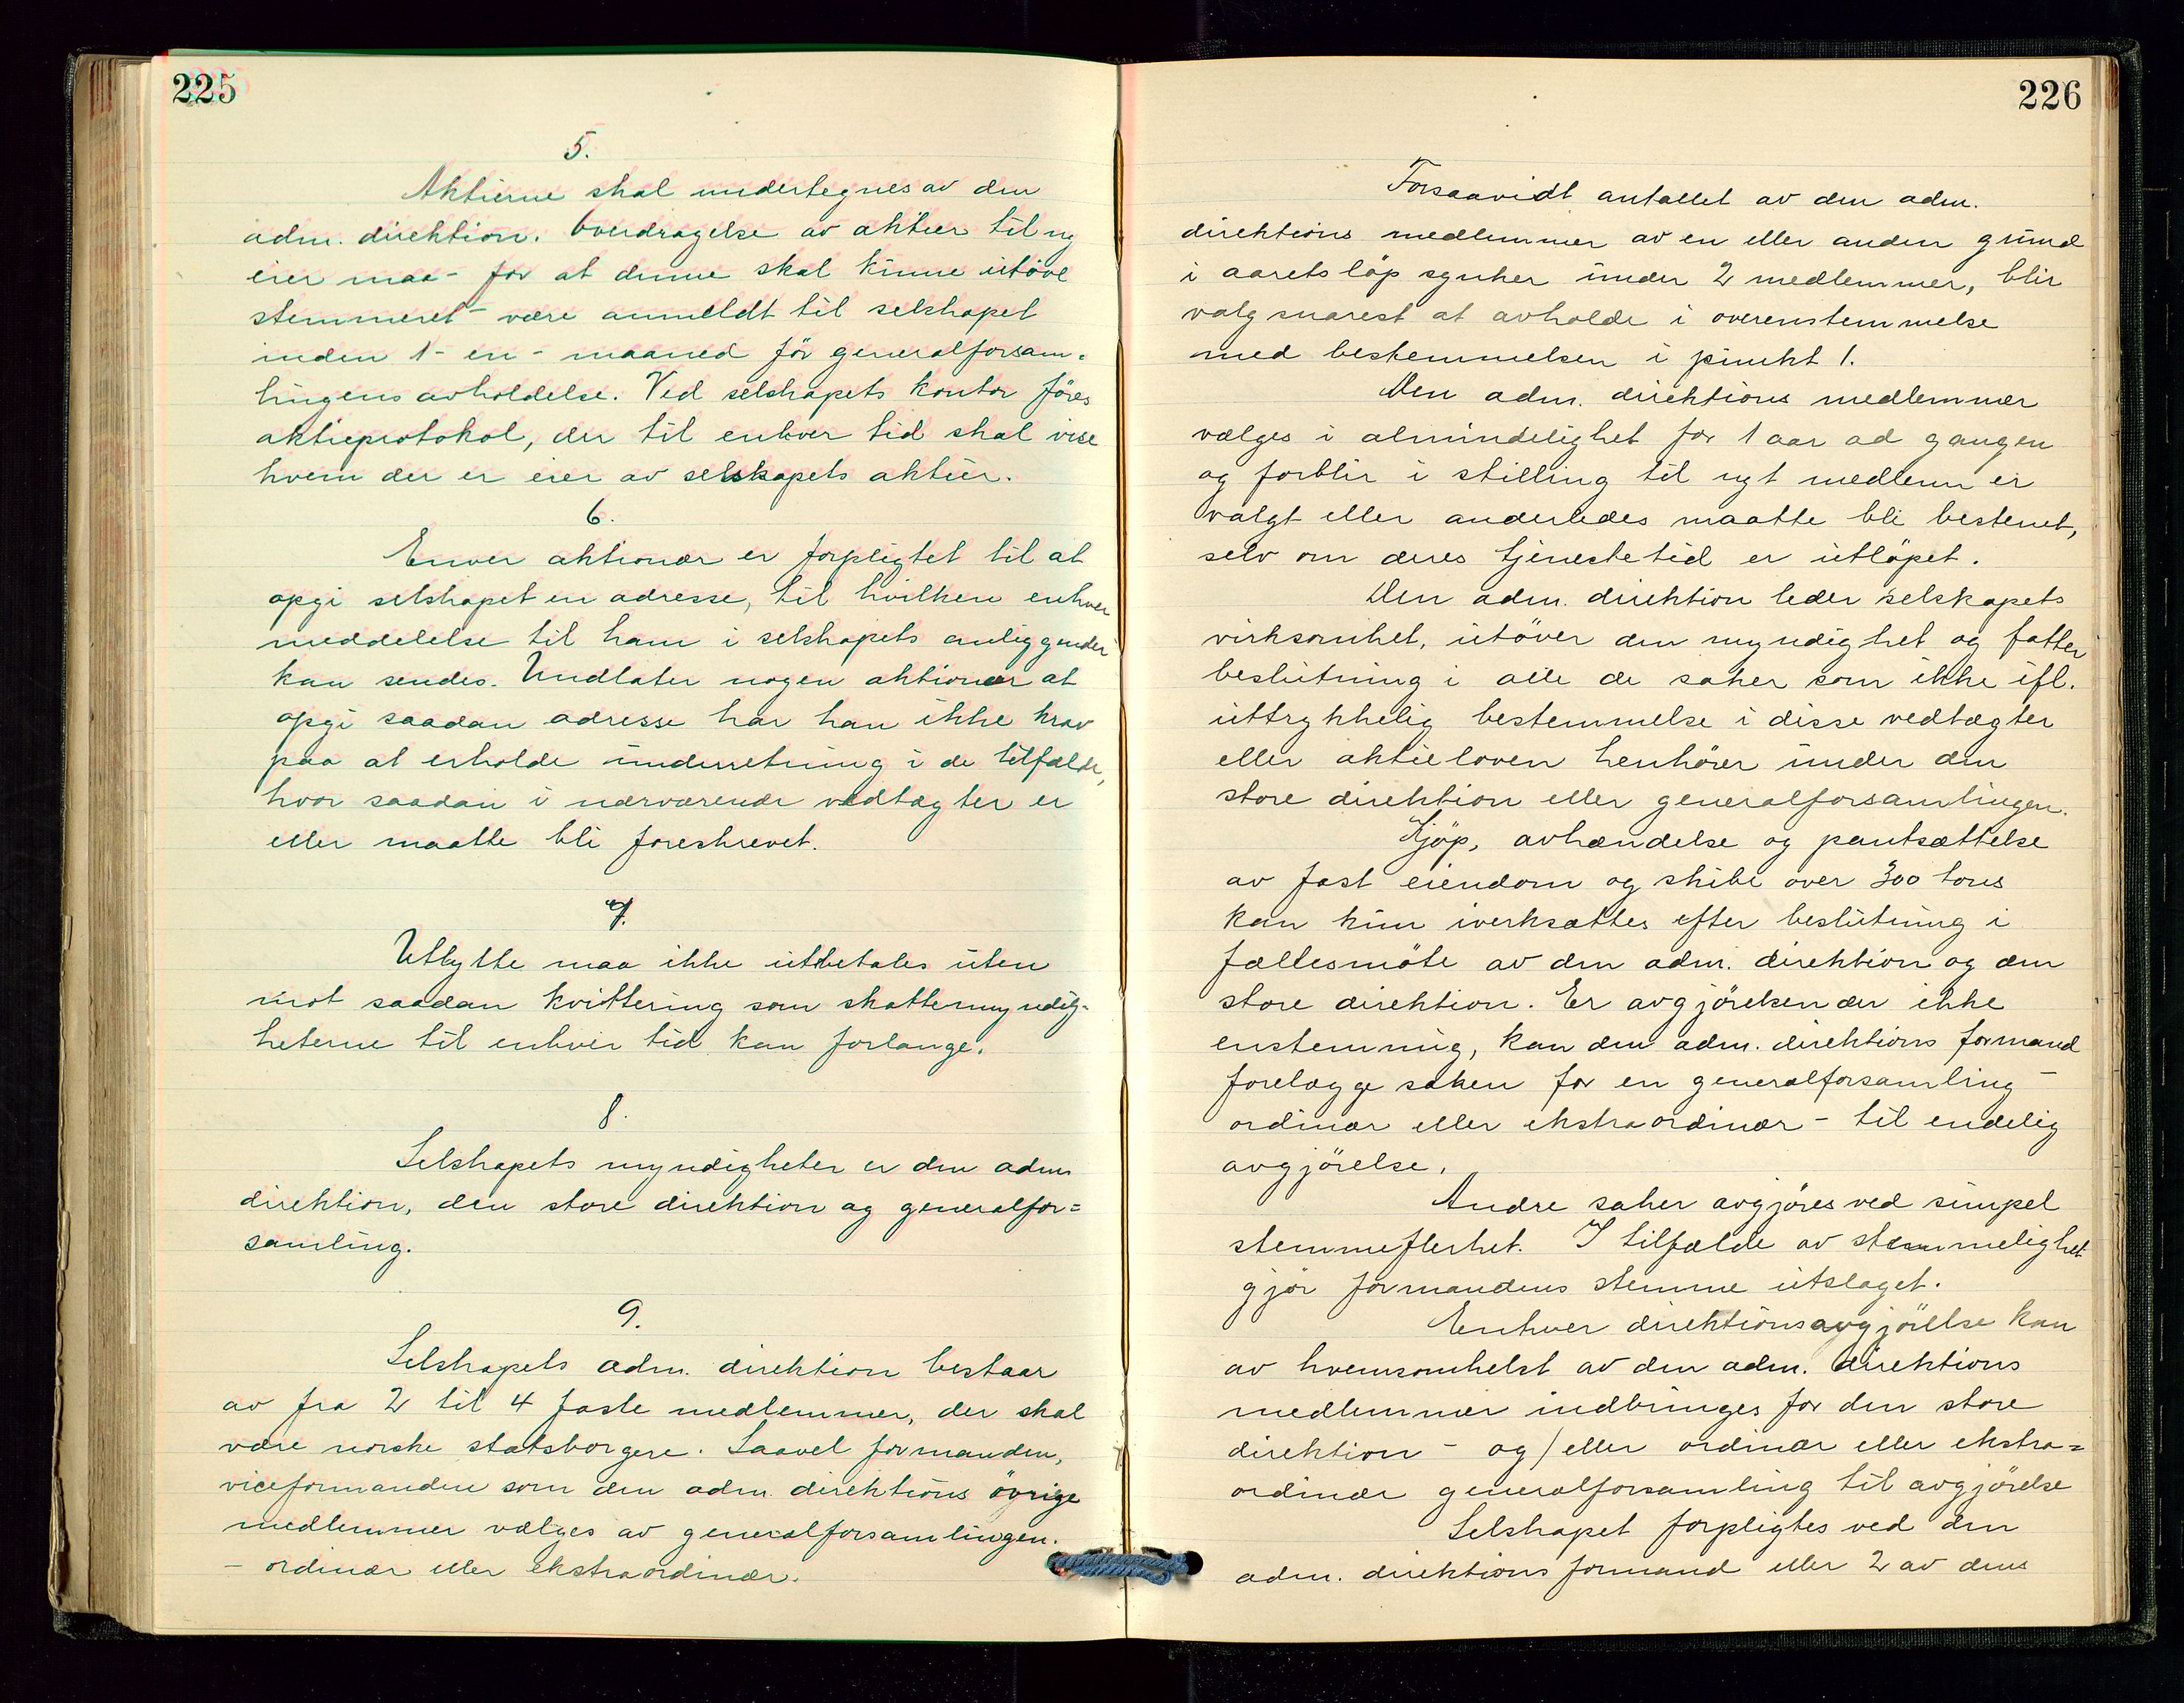 225
5.
Aktierne skal undertegnes av den
adm. direktion. Overdragelse av aktier til ny
eier maa - for at denne skal kunne utöve
stemmeret - være anmeldt til selskapet
inden 1 - en - maaned för generalforsam-
lingens avholdelse. Ved selskapets kontor föres
aktieprotokol, der til enhver tid skal vise
hvem der er eier av selskapets aktier.
6.
Enver aktionær er forpligtet til at
opgi selskapet en adresse, til hvilken enhver
meddelelse til ham i selskapets anliggender
kan sendes. Undlater nogen aktionær at
opgi saadan adresse har han ikke krav
paa at erholde underretning i de tilfælde,
hvor saadan i nærværende vedtægter er
eller maatte bli foreskrevet.
7.
Utbytte maa ikke utbetales uten
mot saadan kvittering som skattemyndig-
heterne til enhver tid kan forlange.
8.
Selskapets myndigheter er den adm.
direktion, den store direktion og generalfor=
samling.
9.
Selskapets adm. direktion bestaar
av fra 2 til 4 faste medlemmer, der skal
være norske statsborgere. Saavel formanden,
viceformanden som den adm. direktions övrige
medlemmer vælges av generalforsamlingen.
- ordinær eller ekstraordinær.
226
Forsaavidt antallet av den adm.
direktions medlemmer av en eller anden grund
i aarets löp synker under 2 medlemmer, blir
valg snarest at avholde i overenstemmelse
med bestemmelsen i punkt 1.
Den adm. direktions medlemmer
vælges i almindelighet for 1 aar ad gangen
og forblir i stilling til nyt medlem er
valgt eller anderledes maatte bli bestemt,
selv om deres tjenestetid er utlöpet.
Den adm. direktion leder selskapets
virksomhet, utöver den myndighet og fatter
beslutning i alle de saker som ikke ifl.
uttrykkelig bestemmelse i disse vedtægter
eller aktieloven henhörer under den
store direktion eller generalforsamlingen.
Kjöp, avhændelse og pantsættelse
av fast eiendom og skibe over 300 tons
kan kun iverksættes efter beslutning i
fællesmöte av den adm. direktion og den
store direktion. Er avgjörelsen der ikke
enstemmig, kan den adm. direktions formand
forelægge saken for en generalforsamling -
ordinær eller ekstraordinær - til endelig
avgjörelse.
Andre saker avgjöres ved simpel
stemmeflerhet. I tilfælde av stemmelighet
gjör formandens stemme utslaget.
Enhver direktionsavgjörelse kan
av hvemsomhelst av den adm. direktions
medlemmer indbringes for den store
direktion - og/eller ordinær eller ekstra=
ordinær generalforsamling til avgjörelse
Selskapet forpligtes ved den
adm. direktions formand eller 2 av dens